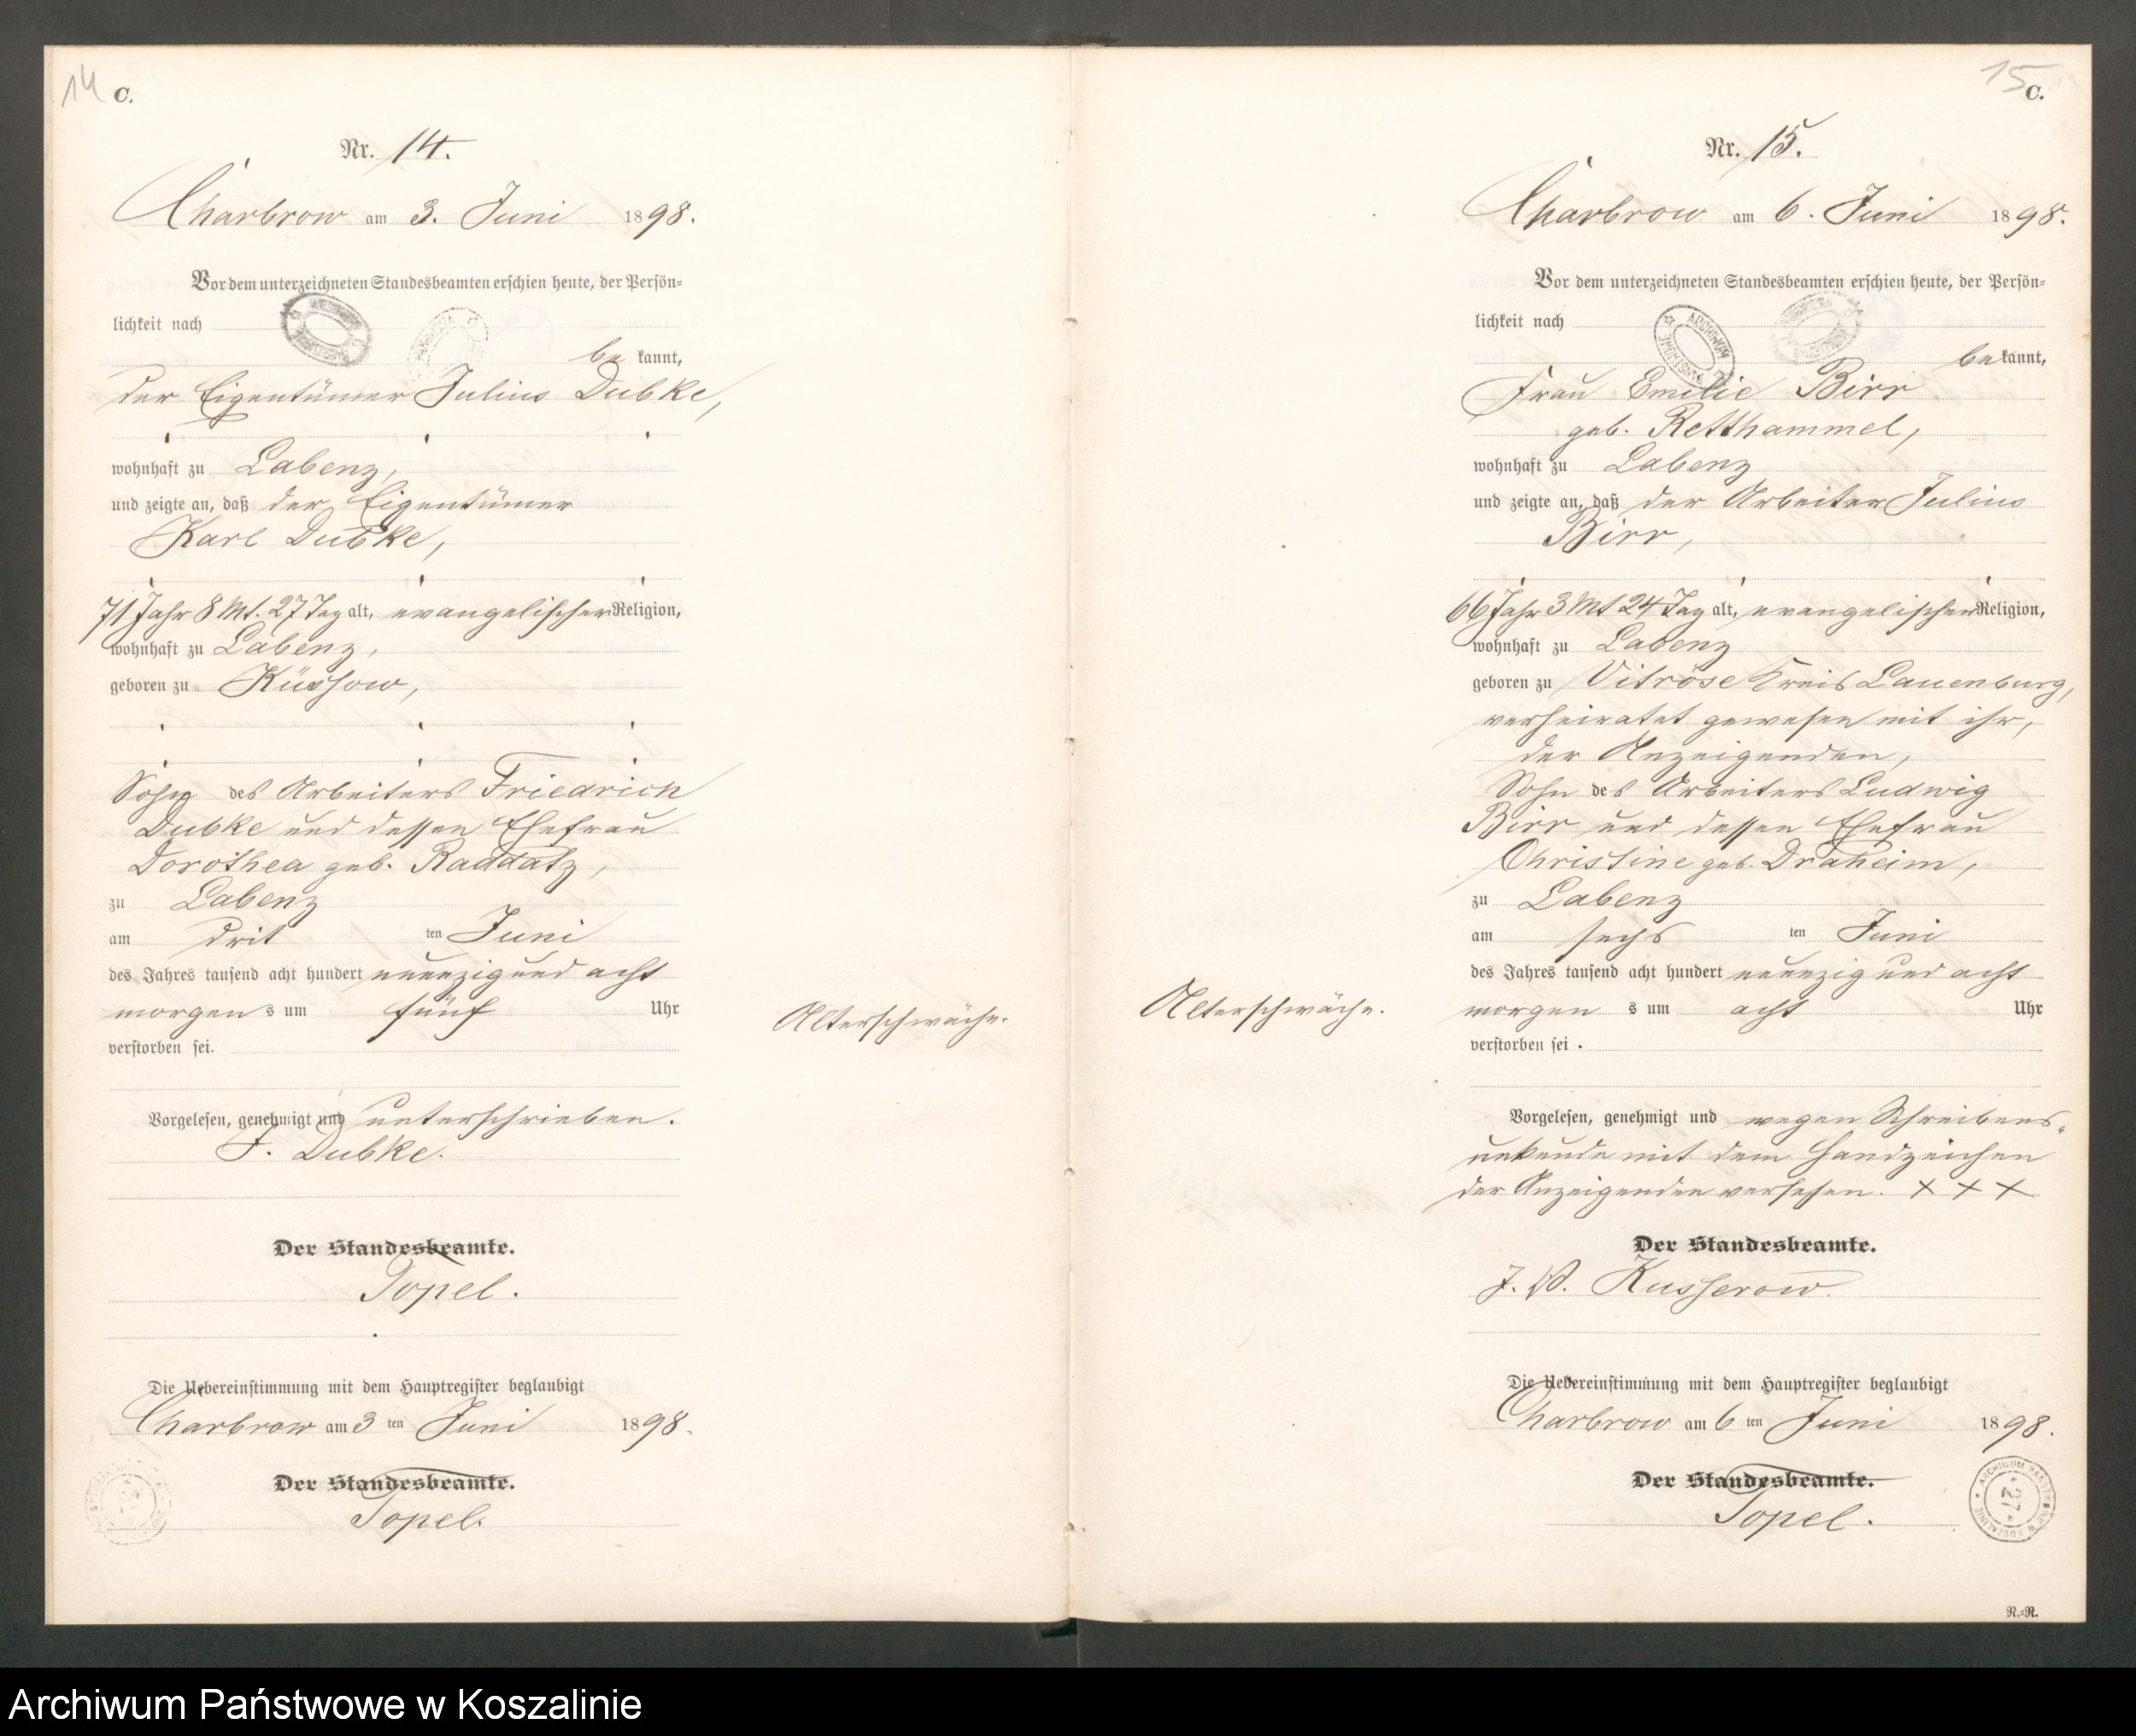 14 C.
Nr. 14.
Charbrow am 3. Juni 1898.
Vor dem unterzeichneten Standesbeamten erschien heute, der Persön-
lichkeit nach
be kannt,
der Eigentümer Julius Dubke,
wohnhaft zu Labenz,
und zeigte an, daß der Eigentümer
Karl Dubke,
71 Jahr 8 Mt. 27 Tag alt, evangelischer Religion,
wohnhaft zu Labenz,
geboren zu Küssow,
Sohn des Arbeiters Friedrich
Dubke und dessen Ehefrau
Dorothea geb. Raddatz,
zu Labenz
am drit ten Juni
des Jahres tausend acht hundert neunzig und acht
morgen s um fünf Uhr
verstorben sei.
Alterschwäche.
Vorgelesen, genehmigt und unterschrieben.
J. Dubke.
Der Standesbeamte.
Topel.
Die Uebereinstimmung mit dem Hauptregister beglaubigt
Charbrow am 3 ten Juni 1898.
Der Standesbeamte.
Topel.
15 C.
Nr. 15.
Charbrow am 6. Juni 1898.
Vor dem unterzeichneten Standesbeamten erschien heute, der Persön-
lichkeit nach
ARCHIWUM
be kannt,
Frau Emilie Birr
geb. Retthammel,
wohnhaft zu Labenz
und zeigte an, daß der Arbeiter Julius
Birr,
66 Jahr 3 Mt 24 Tag alt, evangelischer Religion,
wohnhaft zu Labenz
geboren zu Vitröse Kreis Lauenburg,
verheiratet gewesen mit ihr,
der Anzeigenden,
Sohn des Arbeiters Ludwig
Birr und dessen Ehefrau
Christine geb. Draheim,
zu Labenz
am sechs ten Juni
des Jahres tausend acht hundert neunzig und acht
Alterschwäche.
morgen s um acht Uhr
verstorben sei.
Vorgelesen, genehmigt und wegen Schreibens-
unkunde mit dem Handzeichen
der Anzeigenden versehen. X X X
Der Standesbeamte.
J. V. Kusserow.
Die Uebereinstimmung mit dem Hauptregister beglaubigt
Charbrow am 6 ten Juni 1898.
Der Standesbeamte.
Topel.
ARCHIWUM PAŃSTWOWE W KOSZALINIE
27
N.-N.
Archiwum Państwowe w Koszalinie